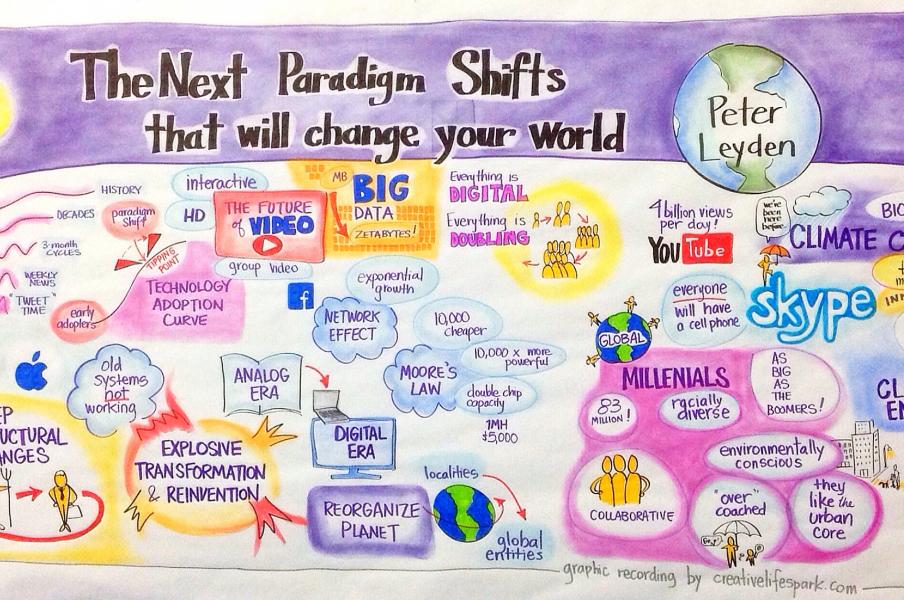 The Next Paradigm Shifts
that will change your world
Peter
Leyden
HISTORY
DECADES
3-month
CYCLES
WEEKLY
NEWS
"TWEET"
TIME
paradigm
shift
TIPPING
POINT
early
adopters
TECHNOLOGY
ADOPTION
CURVE
interactive
HD
THE FUTURE
of VIDEO
group video
MB
BIG
DATA
ZETABYTES!
Everything is
DIGITAL
Everything is
DOUBLING
4 billion views
per day!
YouTube
we've
been
here
before
CLIMATE C
BIO
f
exponential
growth
NETWORK
EFFECT
10,000
cheaper
MOORE'S
LAW
10,000 x more
powerful
double chip
capacity
1MH
$5,000
GLOBAL
everyone
will have
a cell phone
skype
old
systems
not
working
ANALOG
ERA
DIGITAL
ERA
EP
UCTURAL
NGES
EXPLOSIVE
TRANSFORMATION
& REINVENTION
REORGANIZE
PLANET
localities
global
entities
MILLENIALS
83
MILLION!
racially
diverse
AS
BIG
AS
THE
BOOMERS!
environmentally
conscious
COLLABORATIVE
"over"
coached
they
like the
urban
core
CL
EN
graphic recording by creativelifespark.com